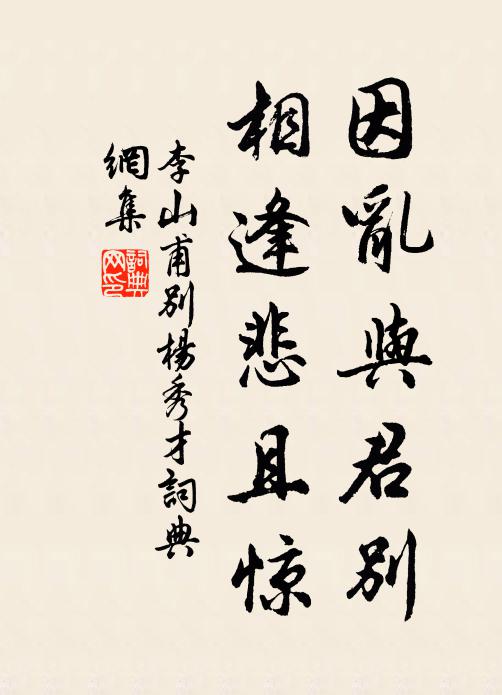 因亂與君別
相逢悲且惊
李山甫別楊秀才詞典
網集
詞典
网印